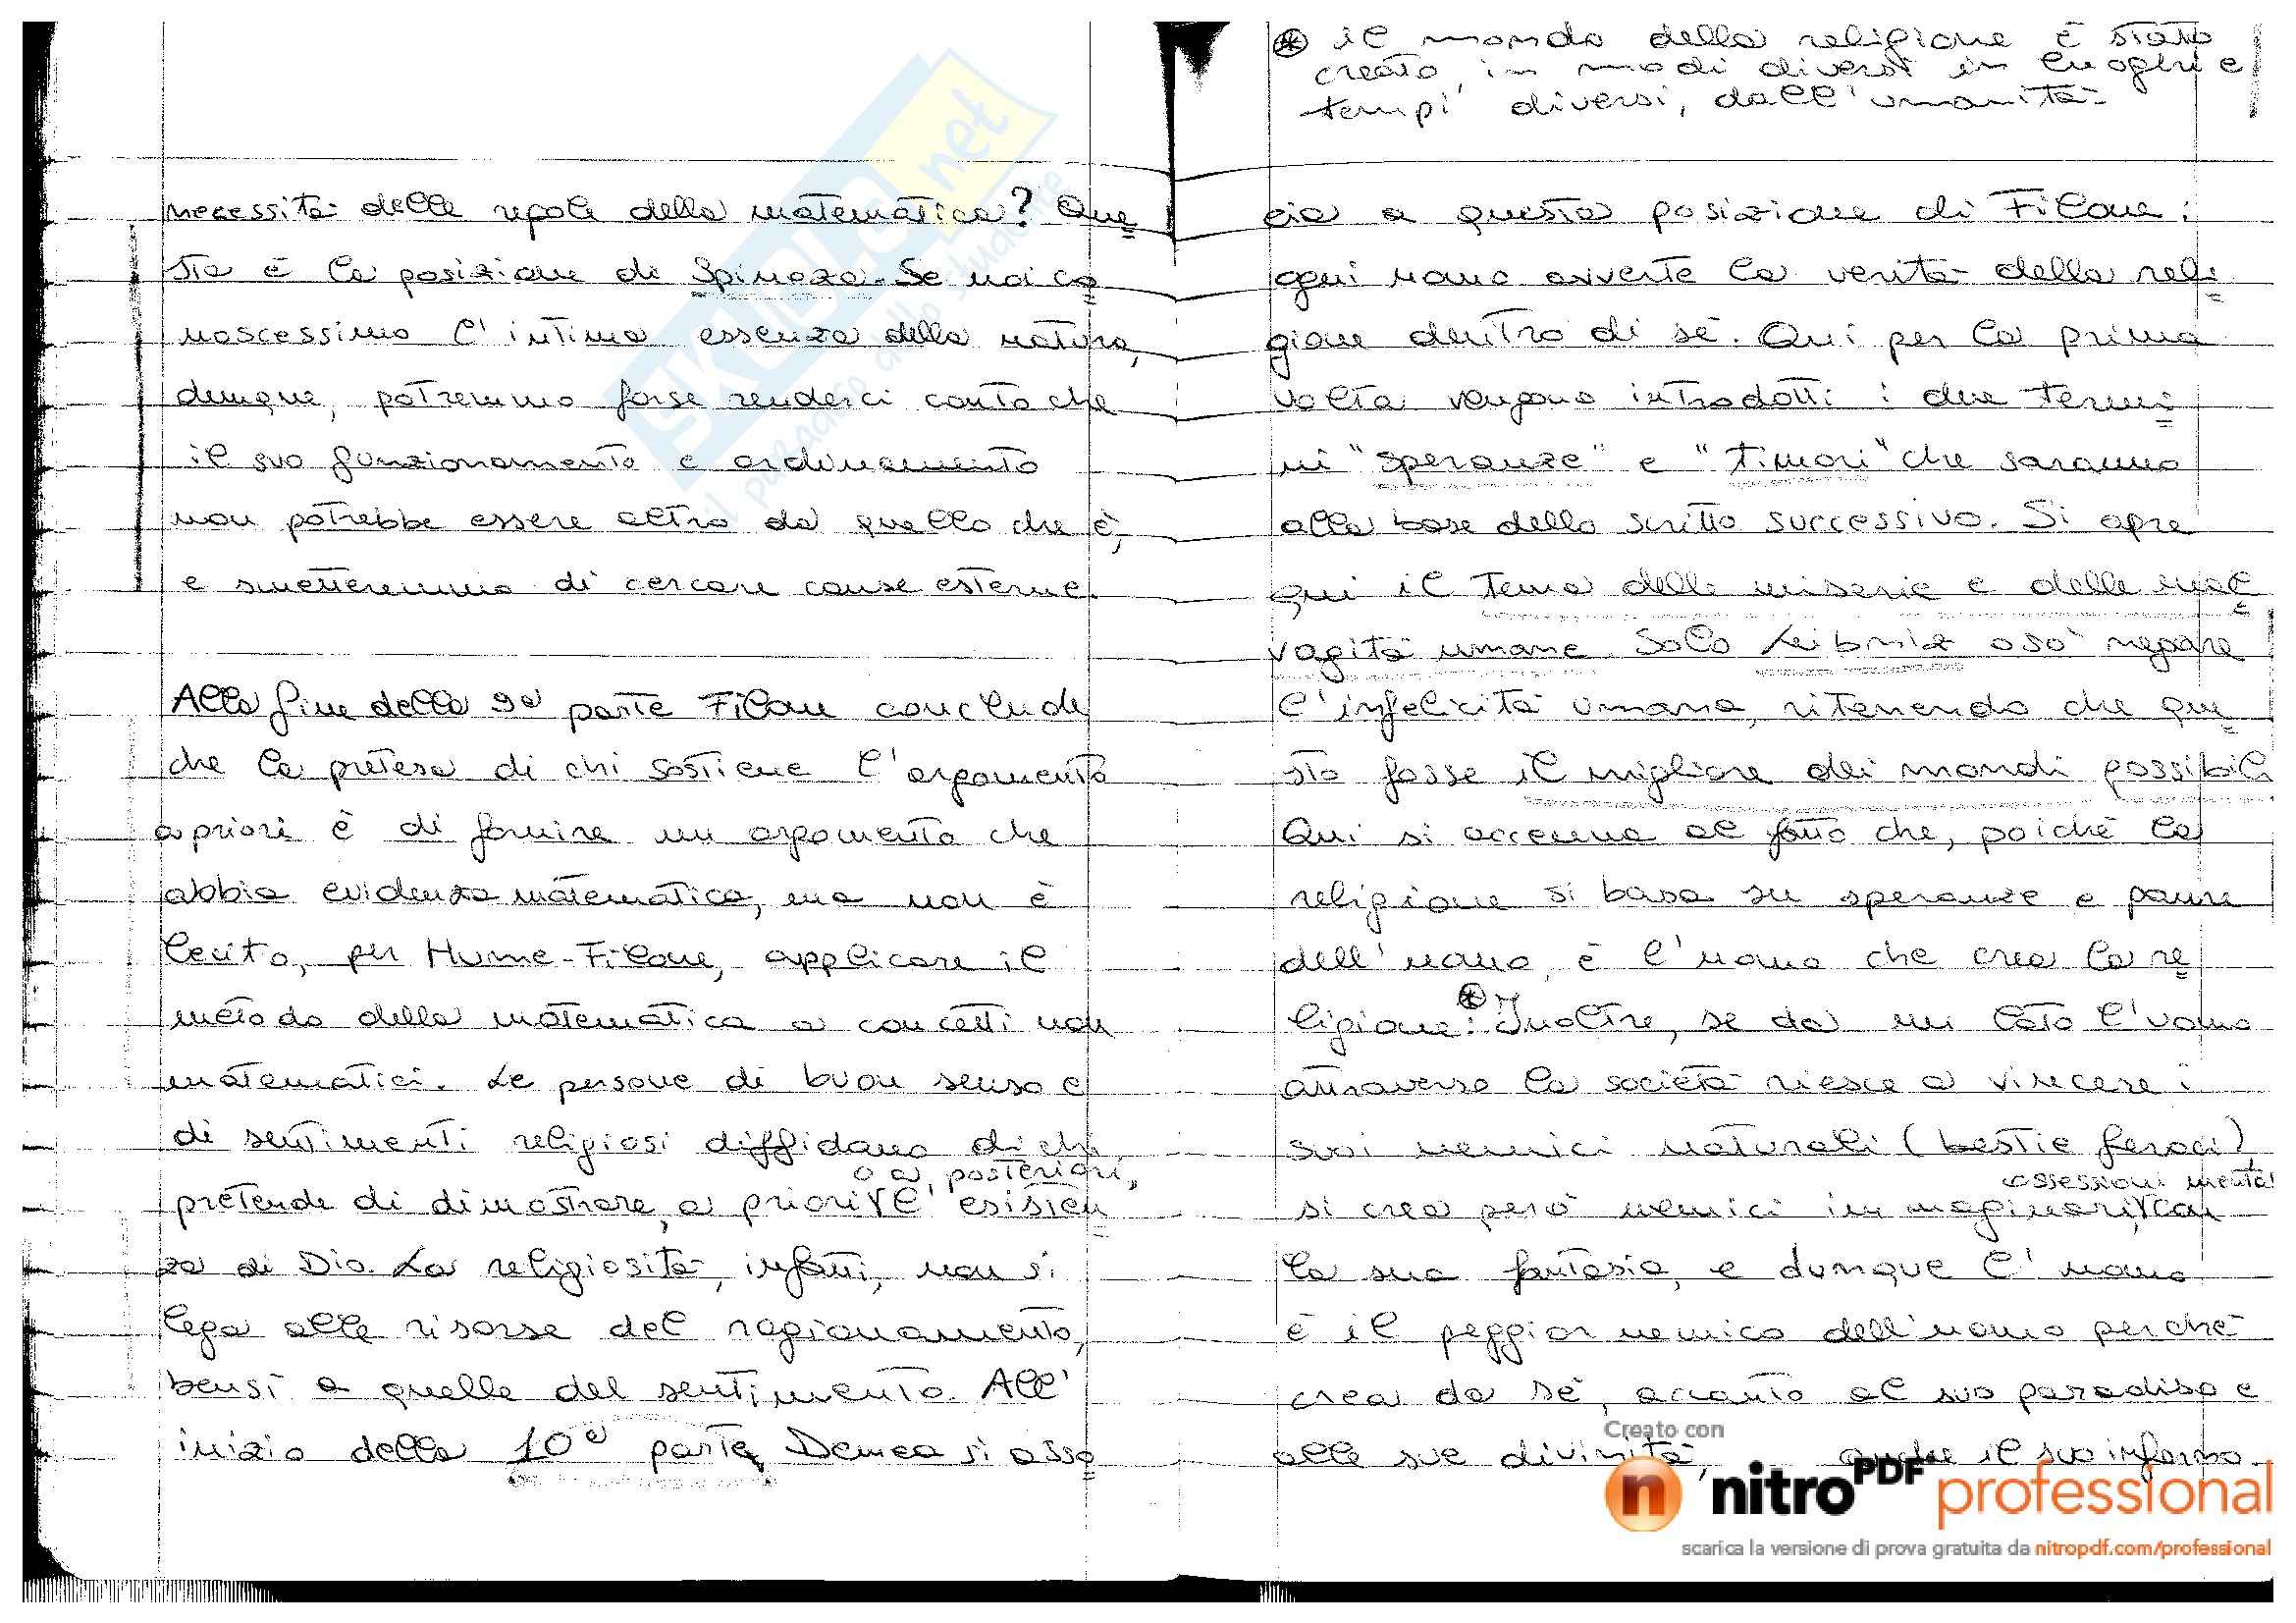 necessità delle regole della matematica? Que
sta è la posizione di Spinoza. Se noi co
noscessimo l'intima essenza della natura,
dunque, potremmo forse renderci conto che
il suo funzionamento e ordinamento
non potrebbe essere altro da quello che è,
e smetteremmo di cercare cause esterne.
Alla fine della 9a parte Filone conclude
che la pretesa di chi sostiene l'argomento
a priori è di fornire un argomento che
abbia evidenza matematica, ma non è
lecito, per Hume-Filone, applicare il
metodo della matematica a concetti non
matematici. Le persone di buon senso e
di sentimenti religiosi diffidano di chi
o a posteriori,
pretende di dimostrare, a priori l'esisten
za di Dio. La religiosità, infatti, non si
lega alle risorse del ragionamento,
bensì a quelle del sentimento. All'
inizio della 10a parte Demea si asso
* il mondo della religione è stato
creato, in modi diversi in luoghi e
tempi diversi, dall'umanità
cia a questa posizione di Filone:
ogni uomo avverte la verità della reli
gione dentro di sé. Qui per la prima
volta vengono introdotti i due termi
ni "speranze" e "timori" che saranno
alla base dello scritto successivo. Si apre
qui il tema delle miserie e delle mal
vagità umane. Solo Leibniz osò negare
l'infelicità umana, ritenendo che que
sto fosse il migliore dei mondi possibili
Qui si accenna al fatto che, poiché la
religione si basa su speranze e paure
dell'uomo, è l'uomo che crea la re
ligione. * Inoltre, se da un lato l'uomo
attraverso la società riesce a vincere i
suoi nemici naturali (bestie feroci),
ossessioni mentali
si crea però nemici immaginari, con
la sua fantasia, e dunque l'uomo
è il peggior nemico dell'uomo perché
crea da sé, accanto al suo paradiso e
alle sue divinità, anche il suo inferno.
SKUOLA.net
il paradiso dello studente
Creato con
nitroPDF professional
scarica la versione di prova gratuita da nitropdf.com/professional